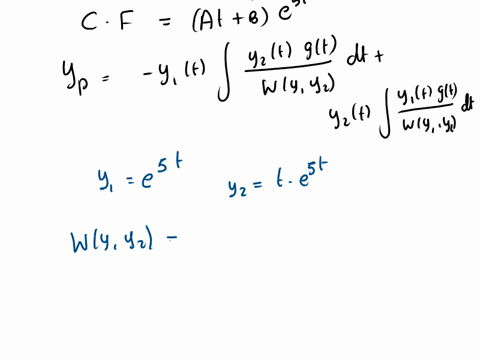 C.F = (At + B) e^5t
y_p = -y_1(t) ∫ y_2(t) g(t) / W(y, y_2) dt +
y_2(t) ∫ y_1(t) g(t) / W(y_1, y_2) dt
y_1 = e^5t y_2 = t · e^5t
W(y, y_2) =